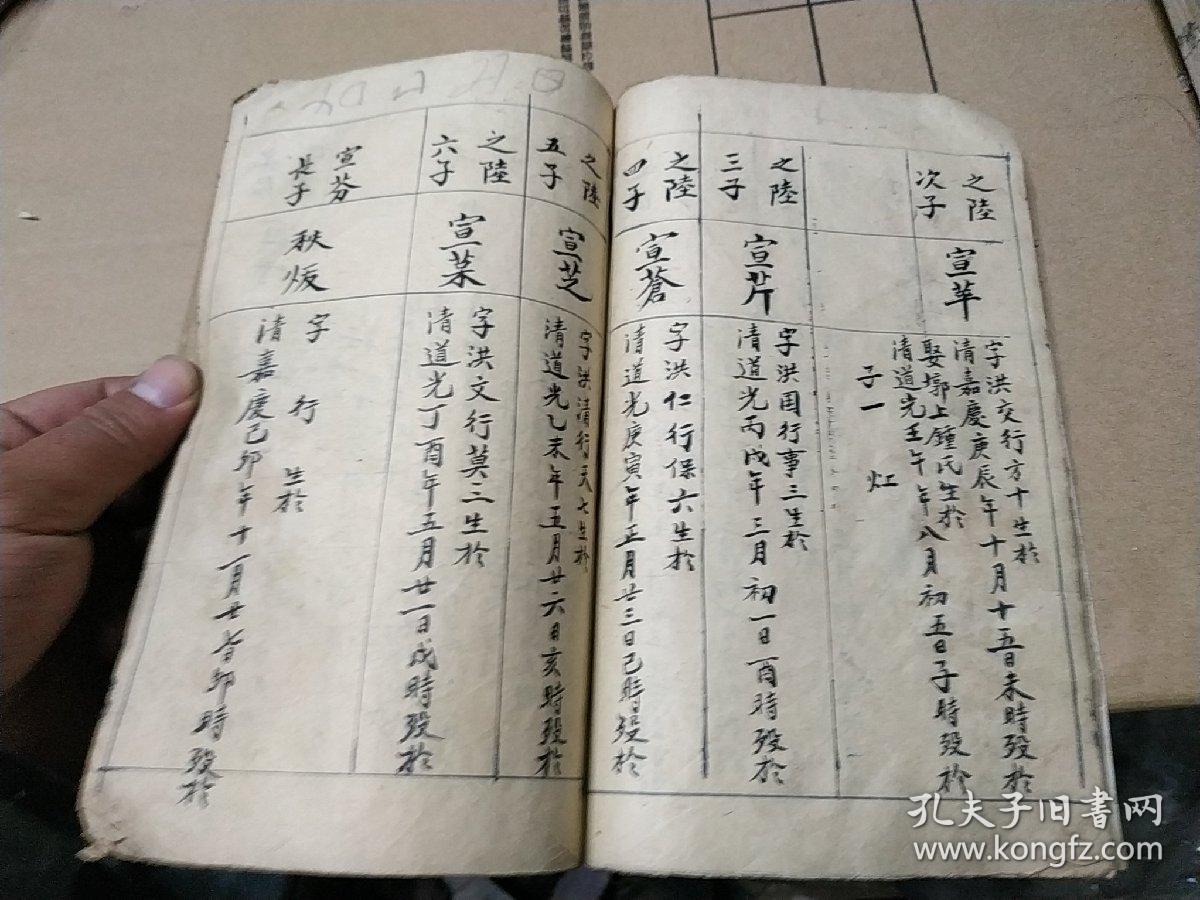 之陸
次子
宣苹
字洪交行方十生於
清嘉慶庚辰年十月十五日未時殁於
娶墎上鍾氏生於
清道光壬午年八月初五日子時殁於
子一
灴
之陸
三子
宣芹
字洪国行事三生於
清道光丙戌年三月初一日酉時殁於
之陸
四子
宣蒼
字洪仁行保六生於
清道光庚寅年正月廿三日己時殁於
之陸
五子
宣芝
字洪清行天七生於
清道光乙未年五月廿六日亥時殁於
之陸
六子
宣菜
字洪文行莫二生於
清道光丁酉年五月廿一日戌時殁於
宣芬
長子
秩煖
字 行 生於
清嘉慶己卯年十一月廿
卯時殁於
孔夫子旧书网
www.kongfz.com